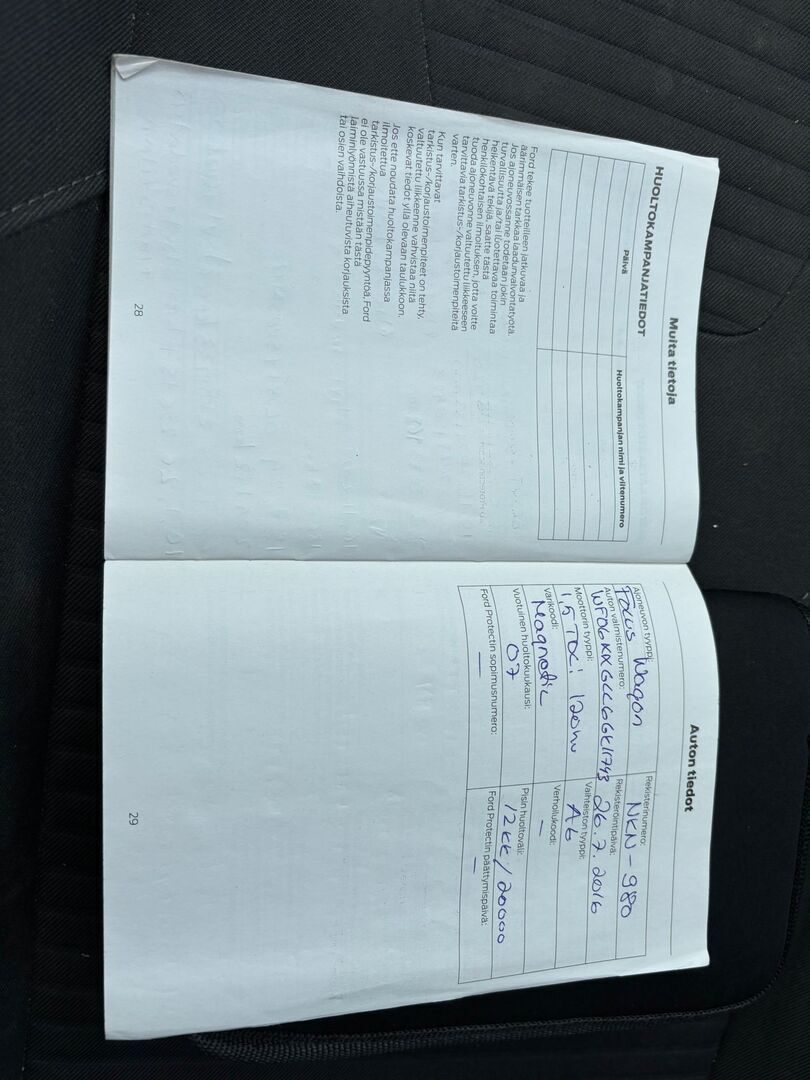 Muita tietoja
HUOLTOKAMPANJATIEDOT
Päivä
Huoltokampanjan nimi ja viitenumero
Ford tekee tuotteilleen jatkuvaa ja
äärimmäisen tarkkaa laadunvalvontatyötä.
Jos ajoneuvossanne todetaan jokin
turvallisuutta ja/tai luotettavaa toimintaa
heikentävä tekijä, saatte tästä
henkilökohtaisen ilmoituksen, jotta voitte
tuoda ajoneuvonne valtuutettu liikkeeseen
tarvittavia tarkistus-/korjaustoimenpiteitä
varten.
Kun tarvittavat
tarkistus-/korjaustoimenpiteet on tehty,
valtuutettu liikkeenne vahvistaa niitä
koskevat tiedot yllä olevaan taulukkoon.
Jos ette noudata huoltokampanjassa
ilmoitettua
tarkistus-/korjaustoimenpidepyyntöä, Ford
ei ole vastuussa mistään tästä
laiminlyönnistä aiheutuvista korjauksista
tai osien vaihdoista.
28
Auton tiedot
Ajoneuvon tyyppi:
Focus Wagon
Rekisterinumero:
NKN-980
Auton valmistenumero:
WF06KXGCC6GK11793
Rekisteröintipäivä:
26.7.2016
Moottorin tyyppi:
1,5 TDCi 120hv
Vaihteiston tyyppi:
A6
Värikoodi:
Magnetic
Verhoilukoodi:
—
Vuotuinen huoltokuukausi:
07
Pisin huoltoväli:
12kk/20000
Ford Protectin sopimusnumero:
—
Ford Protectin päättymispäivä:
—
29